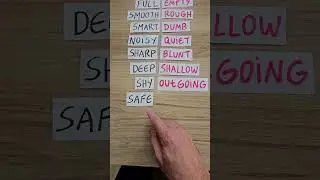 FULL EMPTY
SMOOTH ROUGH
SMART DUMB
NOISY QUIET
SHARP BLUNT
DEEP SHALLOW
SHY OUTGOING
SAFE